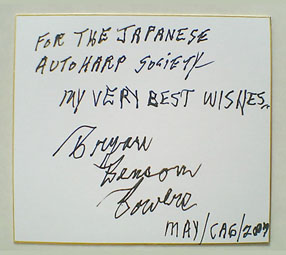 FOR THE JAPANESE
AUTOHARP SOCIETY
MY VERY BEST WISHES,
Bryan
Benson
Bowers
MAY/CAG/2007